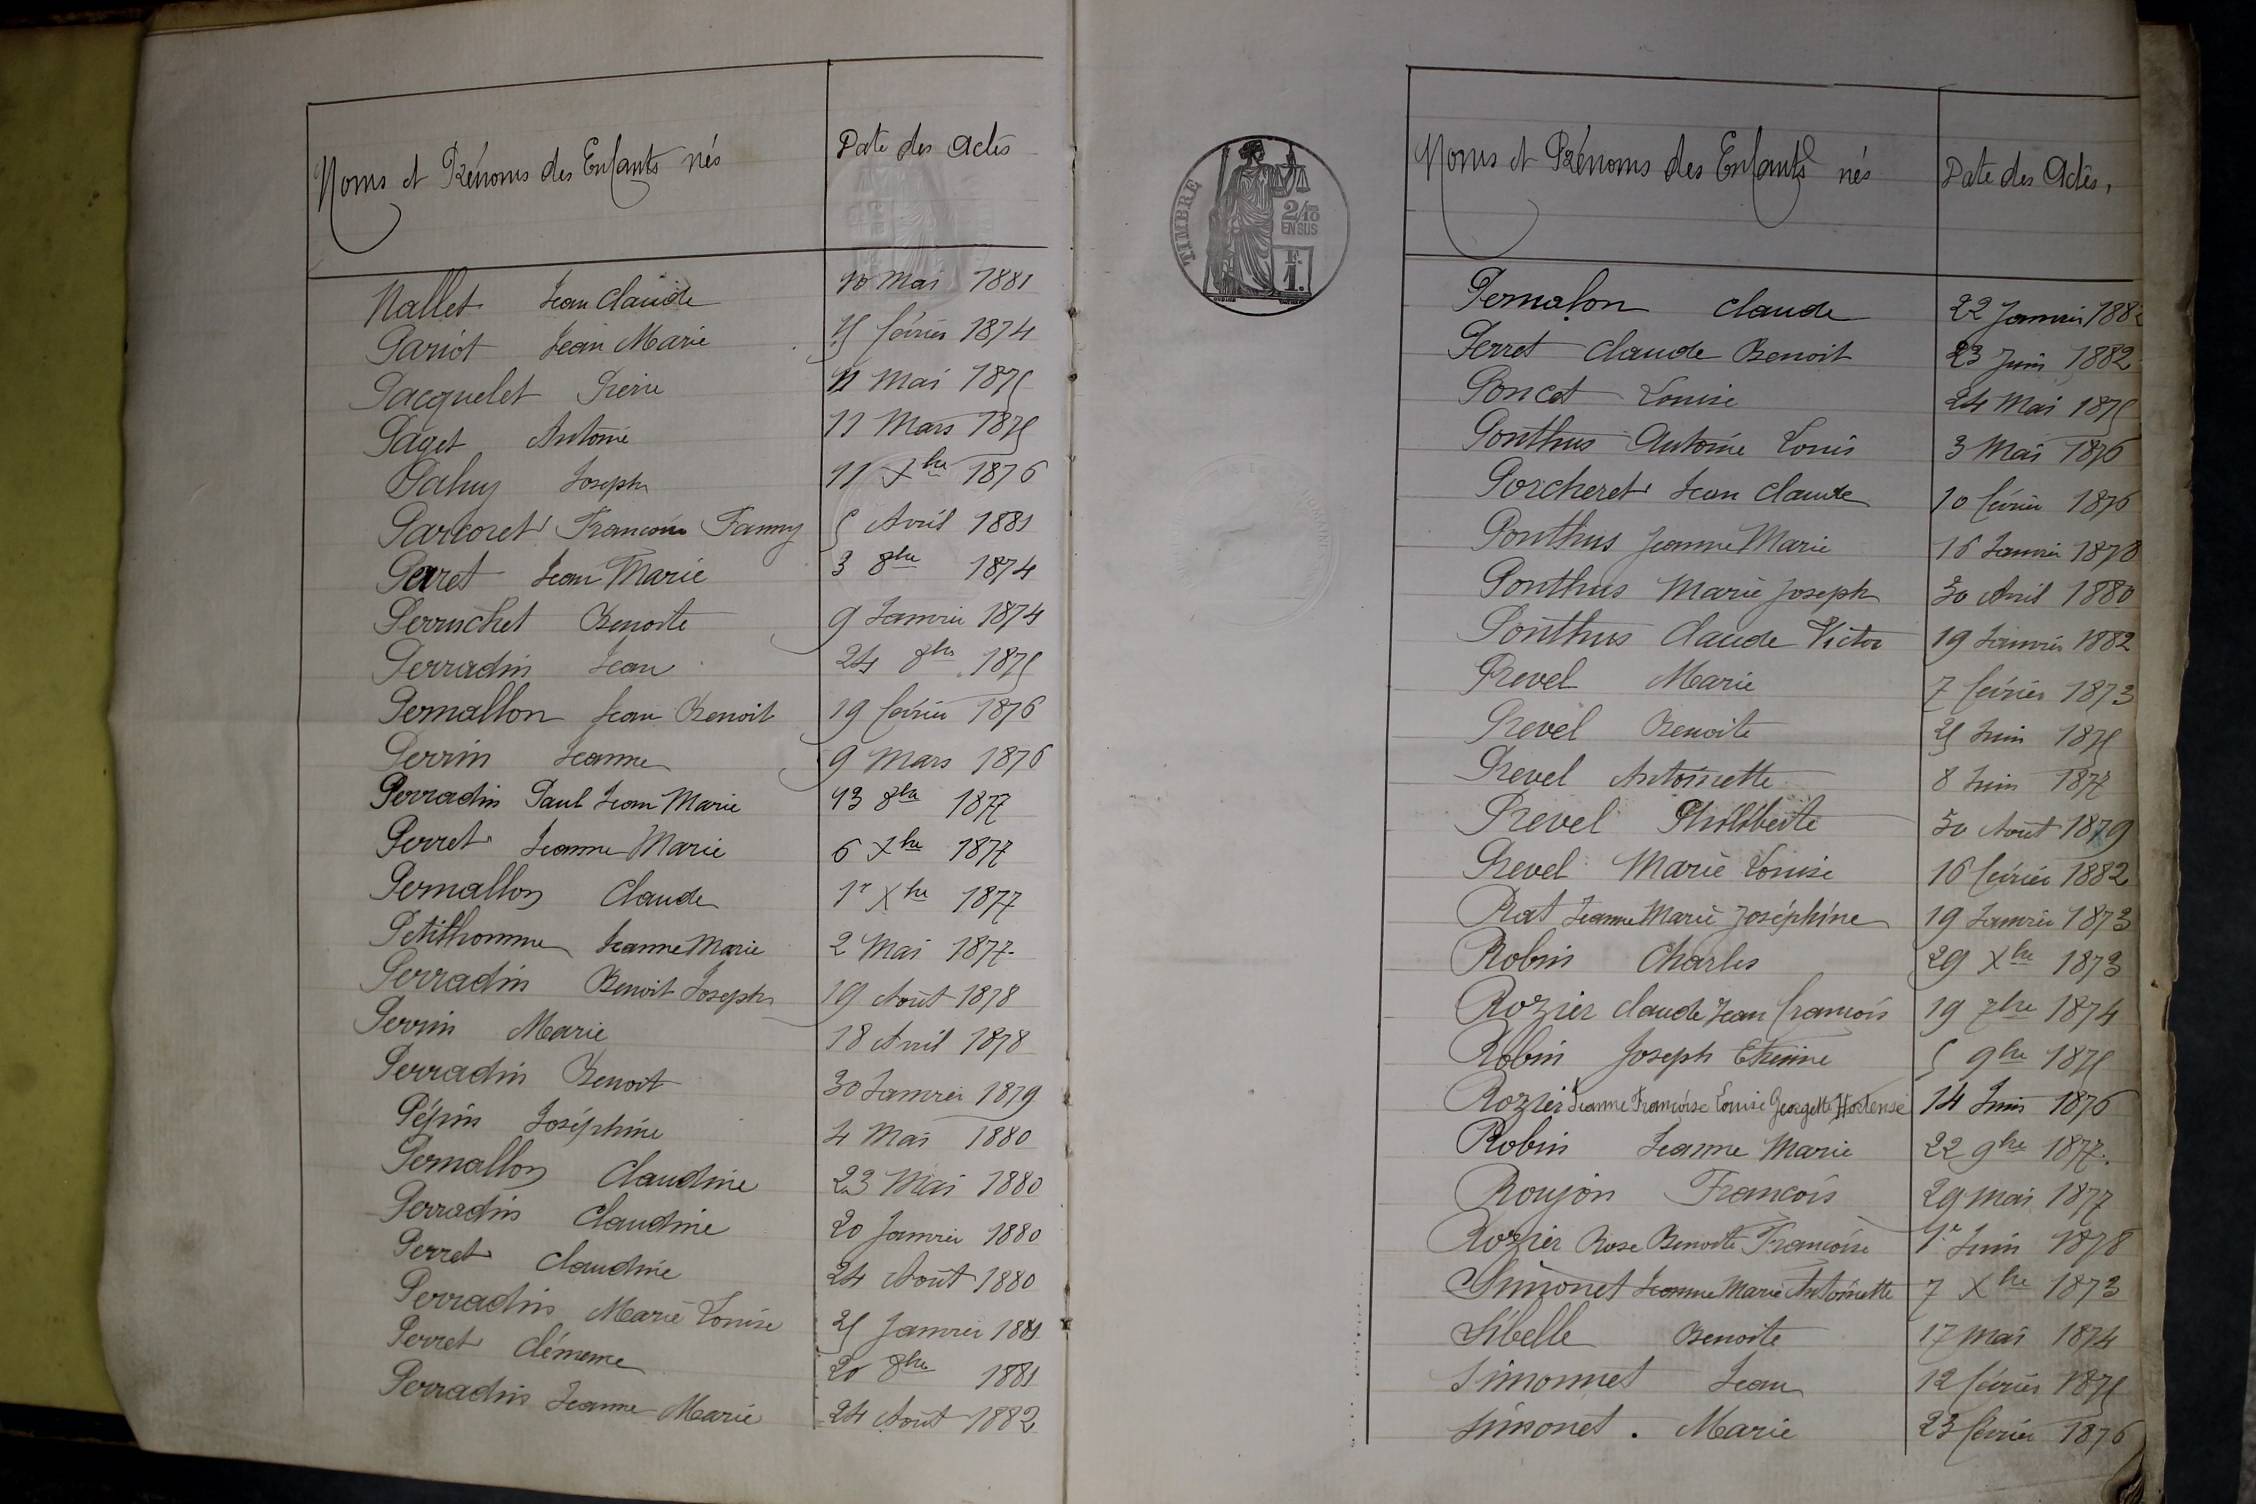 Noms et Prénoms des Enfants nés Date des Actes
Nallet Jean Claude 10 Mai 1881
Pariot Jean Marie 5 février 1874
Pacquelet Pierre 11 Mai 1875
Paget Antoine 11 Mars 1875
Joseph 11 Xbre 1876
Parcoret Françoise Fanny 5 Avril 1881
Perret Jean Marie 3 8bre 1874
Perruchet Benoite 9 Janvier 1874
Perradin Jean 24 8bre 1875
Pernallon Jean Benoit 19 février 1876
Perrin Jeanne 9 Mars 1876
Perradin Paul Jean Marie 13 8bre 1877
Perret Jeanne Marie 6 Xbre 1877
Pernallon Claude 1r Xbre 1877
Petithomme Jeanne Marie 2 Mai 1877
Perradin Benoit Joseph 19 Août 1878
Perrin Marie 18 Avril 1878
Perradin Benoit 30 Janvier 1879
Pépin Joséphine 4 Mai 1880
Pernallon Claudine 23 Mai 1880
Perradin Claudine 20 Janvier 1880
Perret Claudine 24 Août 1880
Perradin Marie Louise 25 Janvier 1881
Perret Clémence 20 8bre 1881
Perradin Jeanne Marie 24 Août 1882
TIMBRE
2/10
EN SUS
F.
1.
Noms et Prénoms des Enfants nés Date des Actes,
Pernalon Claude 22 Janvier 1882
Perret Claude Benoit 23 Juin 1882
Poncet Louise 24 Mai 1875
Ponthus Antoine Louis 3 Mai 1876
Porcheret Jean Claude 10 février 1876
Ponthus Jeanne Marie 16 Janvier 1878
Ponthus Marie Joseph 30 Avril 1880
Ponthus Claude Victor 19 Janvier 1882
Prevel Marie 7 février 1873
Prevel Benoite 25 Juin 1875
Prevel Antoinette 8 Juin 1877
Prevel Philiberte 30 Août 1879
Prevel Marie Louise 16 février 1882
Rat Jeanne Marie Joséphine 19 Janvier 1873
Robin Charles 29 Xbre 1873
Rozier Claude Jean François 19 7bre 1874
Robin Joseph Etienne 5 9bre 1875
Rozier Jeanne Françoise Louise Georgette Hortense 14 Juin 1876
Robin Jeanne Marie 22 9bre 1877.
Roujon François 29 Mai 1877
Rozier Rose Benoite Françoise 1r Juin 1878
Simonet Jeanne Marie Antoinette 7 Xbre 1873
Sibelle Benoite 17 Mai 1874
Simonnet Jean 12 février 1875
Simonet . Marie 23 février 1876